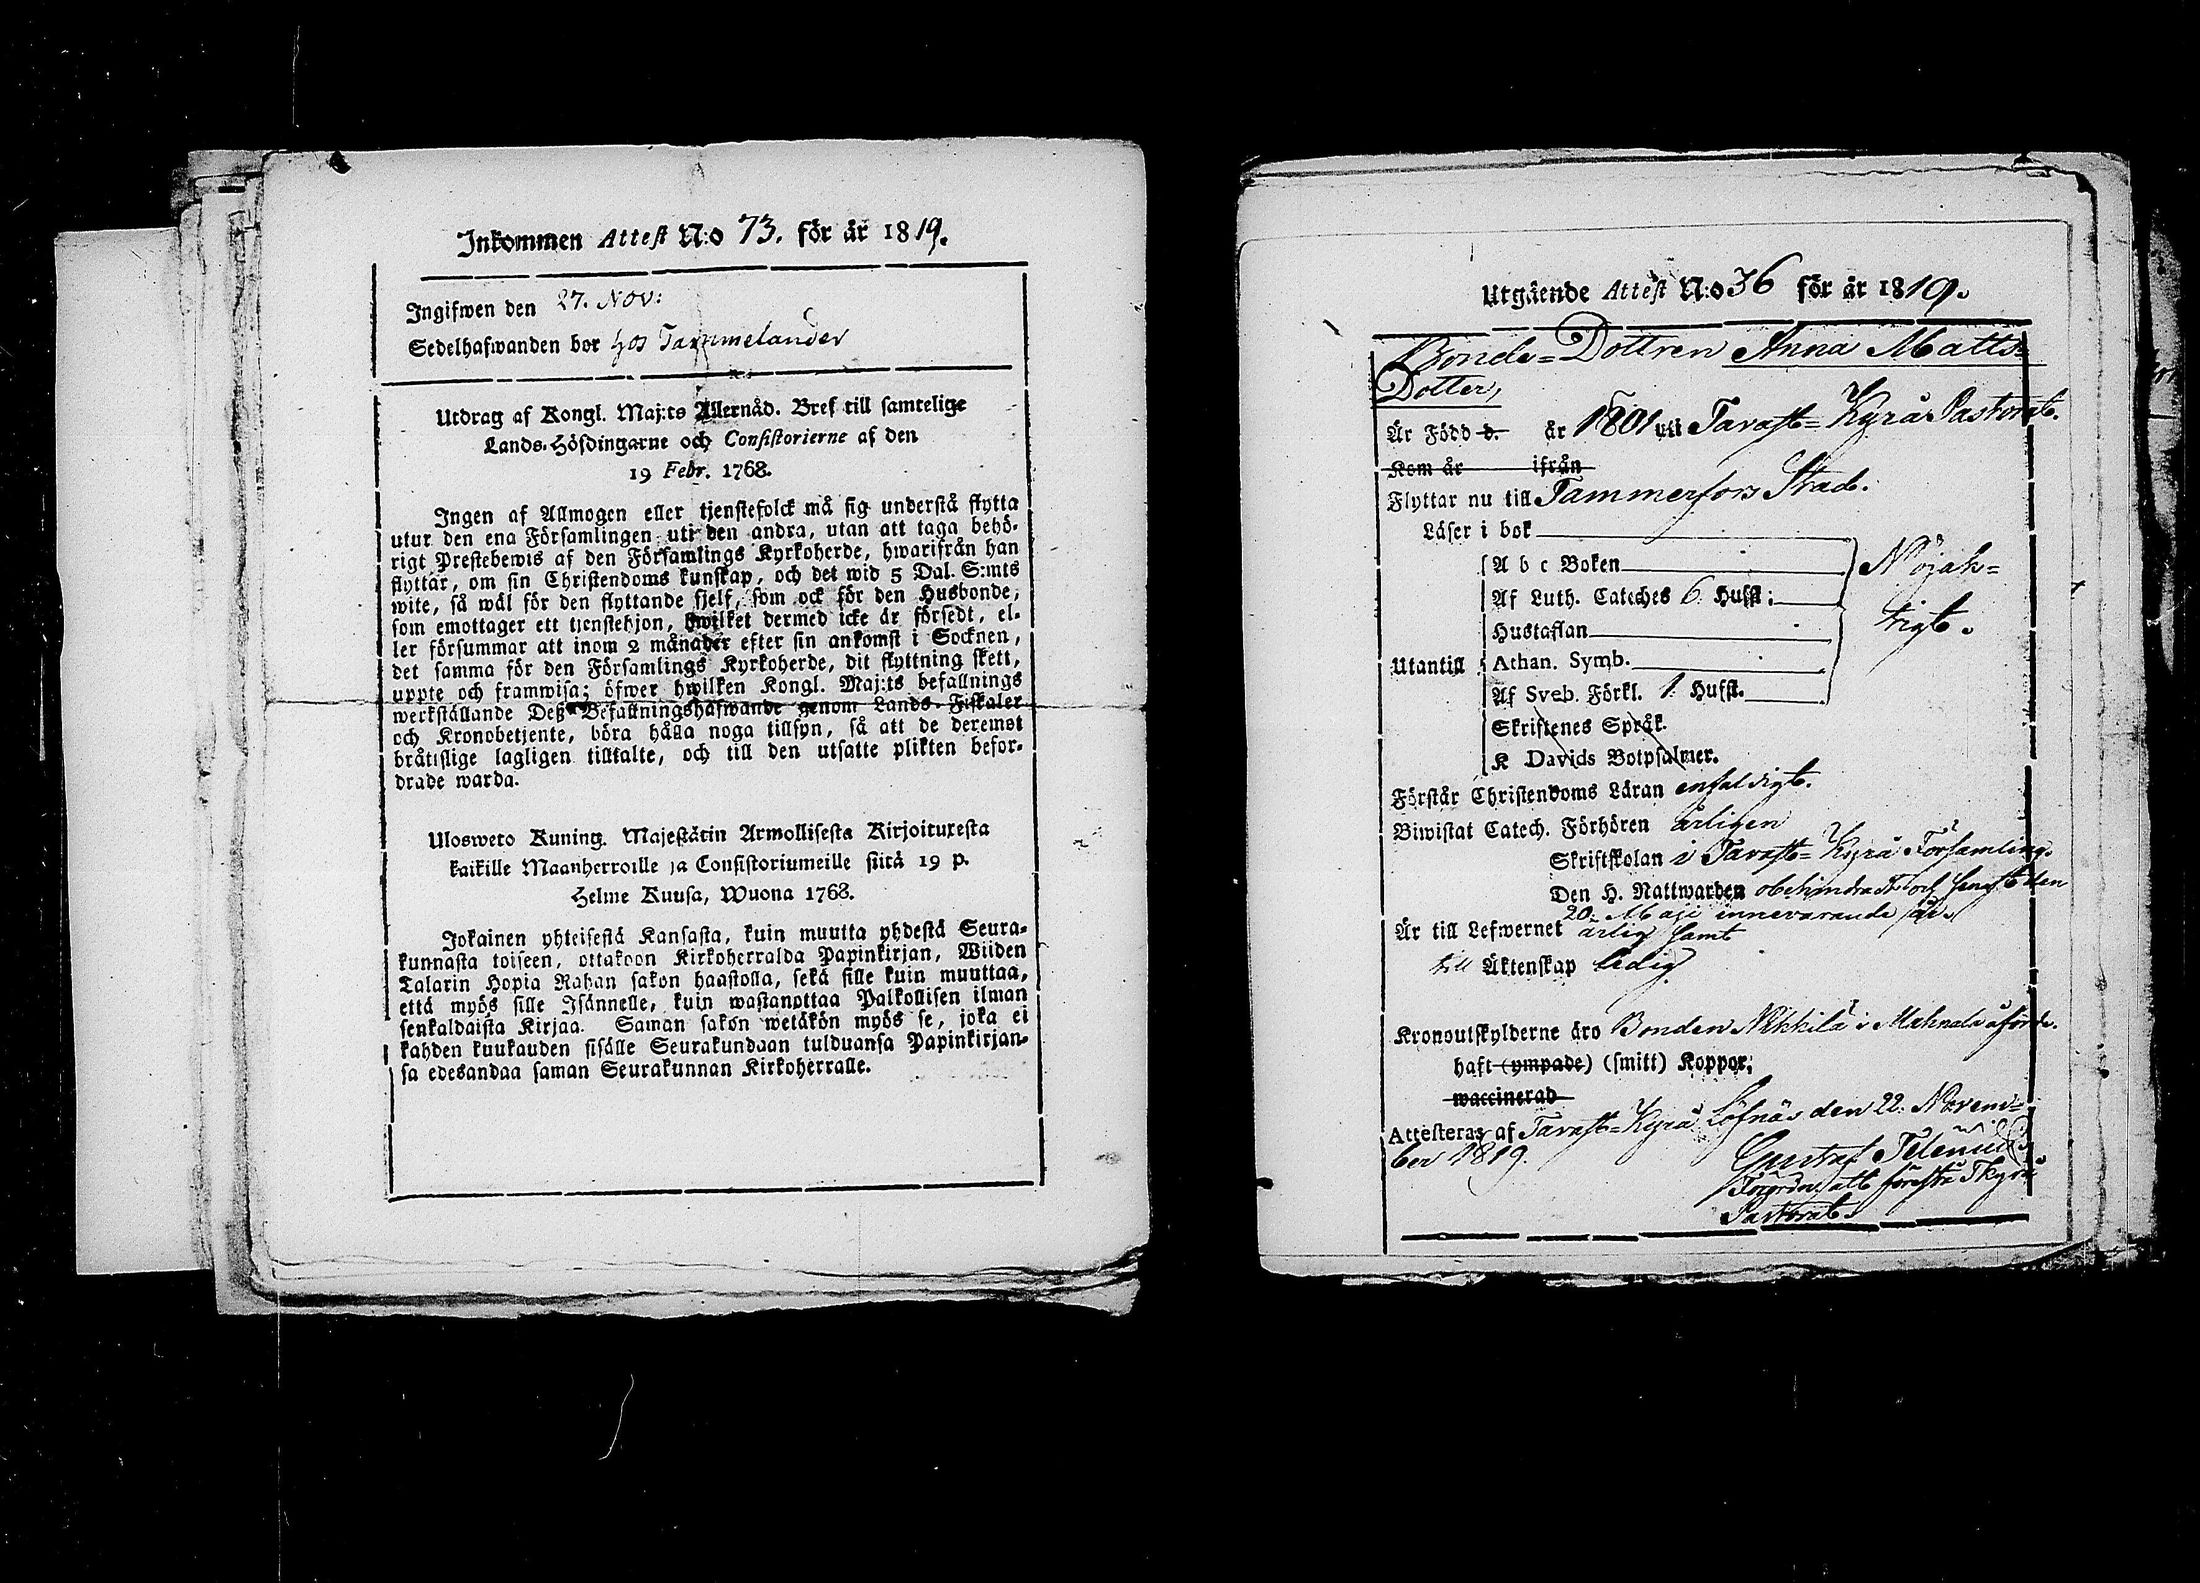 Inkommen Attest N:o 73. för år 1819.
Ingifwen den 27. Nov:
Sedelhafwanden bor hos Tammelander
Utdrag af Kongl. Maj:ts Allernåd. Bref till samtelige
Lands-Höfdingarne och Consistorierne af den
19 Febr. 1768.
Ingen af Allmogen eller tjenstefolck må sig understå flytta
utur den ena Församlingen uti den andra, utan att taga behö-
rigt Prestebewis af den Församlings Kyrkoherde, hwarifrån han
flyttar, om sin Christendoms kunskap, och det wid 5 Dal. S:mts
wite, så wäl för den flyttande sjelf, som ock för den Husbonde,
som emottager ett tjenstehjon, hwilket dermed icke är försedt, el-
ler försummar att inom 2 månader efter sin ankomst i Socknen,
det samma för den Församlings Kyrkoherde, dit flyttning skett,
uppte och framwisa; öfwer hwilken Kongl. Maj:ts befallnings
werkställande Deß Befallningshafwande genom Lands-Fiskaler
och Kronobetjente, böra hålla noga tillsyn, så att de deremot
bråtislige lagligen tilltalte, och till den utsatte plikten befor-
drade warda.
Ulosweto Kuning. Majestätin Armollisesta Kirjoituxesta
kaikille Maanherroille ja Consistoriumeille siitä 19 p.
Helme Kuusa, Wuona 1768.
Jokainen yhteisestä Kansasta, kuin muutta yhdestä Seura-
kunnasta toiseen, ottakoon Kirkoherralda Papinkirjan, Wiiden
Talarin Hopia Rahan sakon haastolla, sekä sille kuin muuttaa,
että myös sille Isännelle, kuin wastanottaa Palkollisen ilman
senkaldaista Kirjaa. Saman sakon wetäkön myös se, joka ei
kahden kuukauden sisälle Seurakundaan tulduansa Papinkirjan-
sa edesandaa saman Seurakunnan Kirkoherralle.
Utgående Attest N:o 36 för år 1819.
Bonde-Dottren Anna Matts-
Dotter,
Är Född d. år 1801 uti Tavast-Kyrå Pastorat.
Kom år ifrån
Flyttar nu till Tammerfors Stad.
Läser i bok
A b c Boken Nöjak-
Af Luth. Cateches 6 Hufst;
Hustaflan trigt.
Utantill Athan. Symb.
Af Sveb. Förkl. 1. Hufst.
Skriftenes Språk.
K Davids Botpsalmer.
Förstår Christendoms Läran enfaldigt.
Biwistat Catech. Förhören årligen
Skriftskolan i Tavast-Kyrå Församling.
Den H. Nattwarden obehindradt och senast den
20. Maji innevarande år.
Är till Lefwernet ärlig samt
till Äktenskap ledig
Kronoutskylderne äro Bonden Nikkilä i Mahnala åförde.
haft (ympade) (smitt) Koppor;
waccinerad
Attesteras af Tavast-Kyrå Löfnäs den 22. Novem-
ber 1819.
Gustaf Telenius
förordn. att förestå TKyrå
Pastorat.